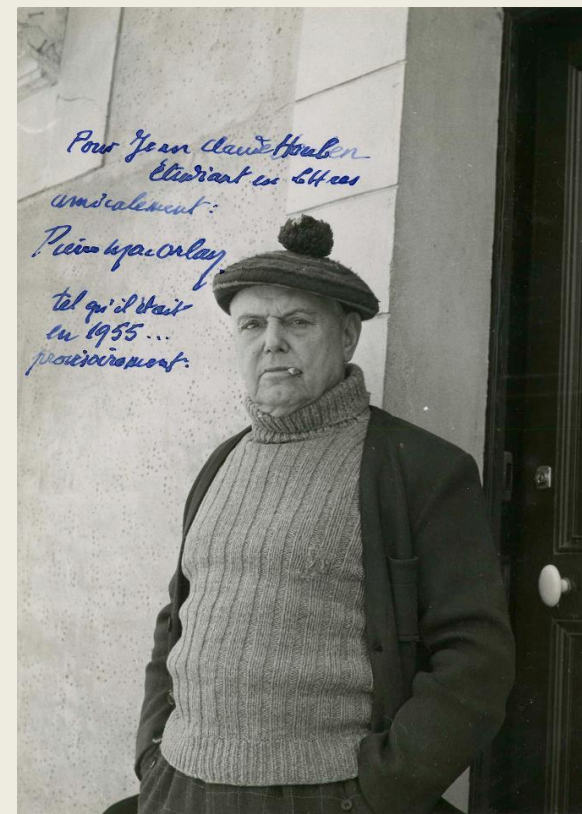 Pour Jean Claude Houben
Étudiant en lettres
amicalement :
Pierre Mac Orlan
tel qu'il était
en 1955...
provisoirement.